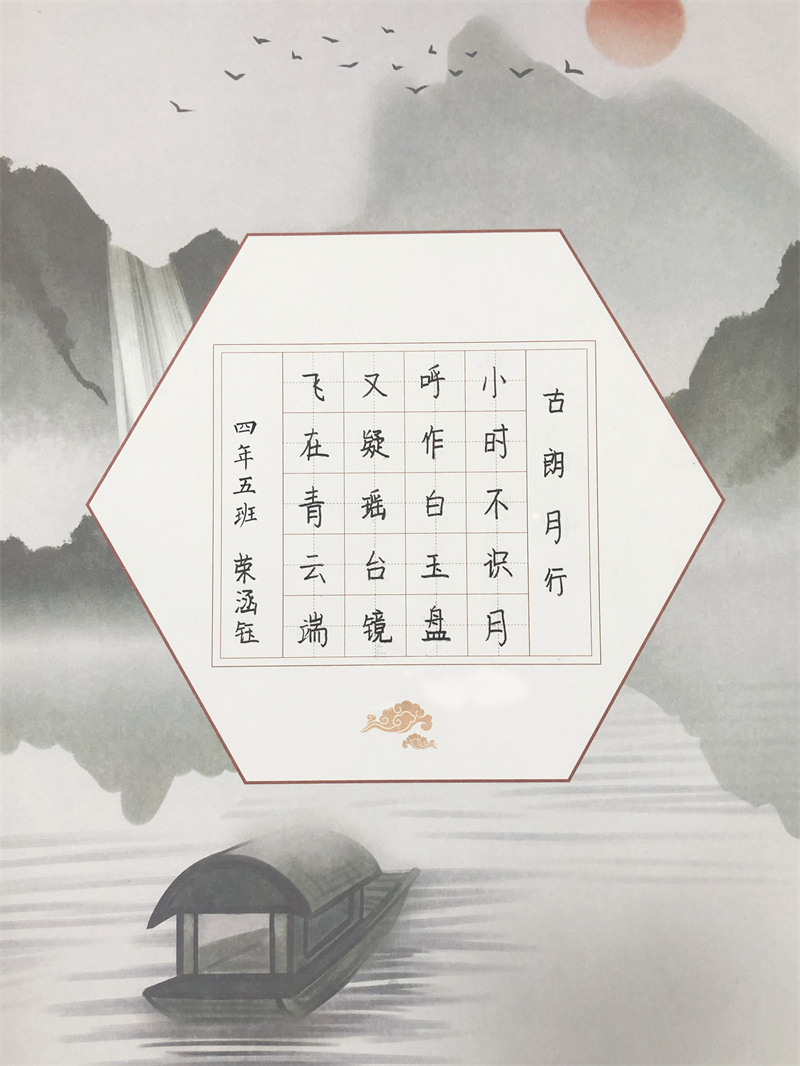 古朗月行
小时不识月
呼作白玉盘
又疑瑶台镜
飞在青云端
四年五班 荣涵钰